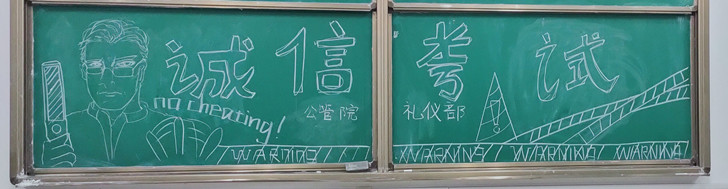 诚信考试
no cheating!
公管院 礼仪部
WARNING WARNING WARNING WARNING